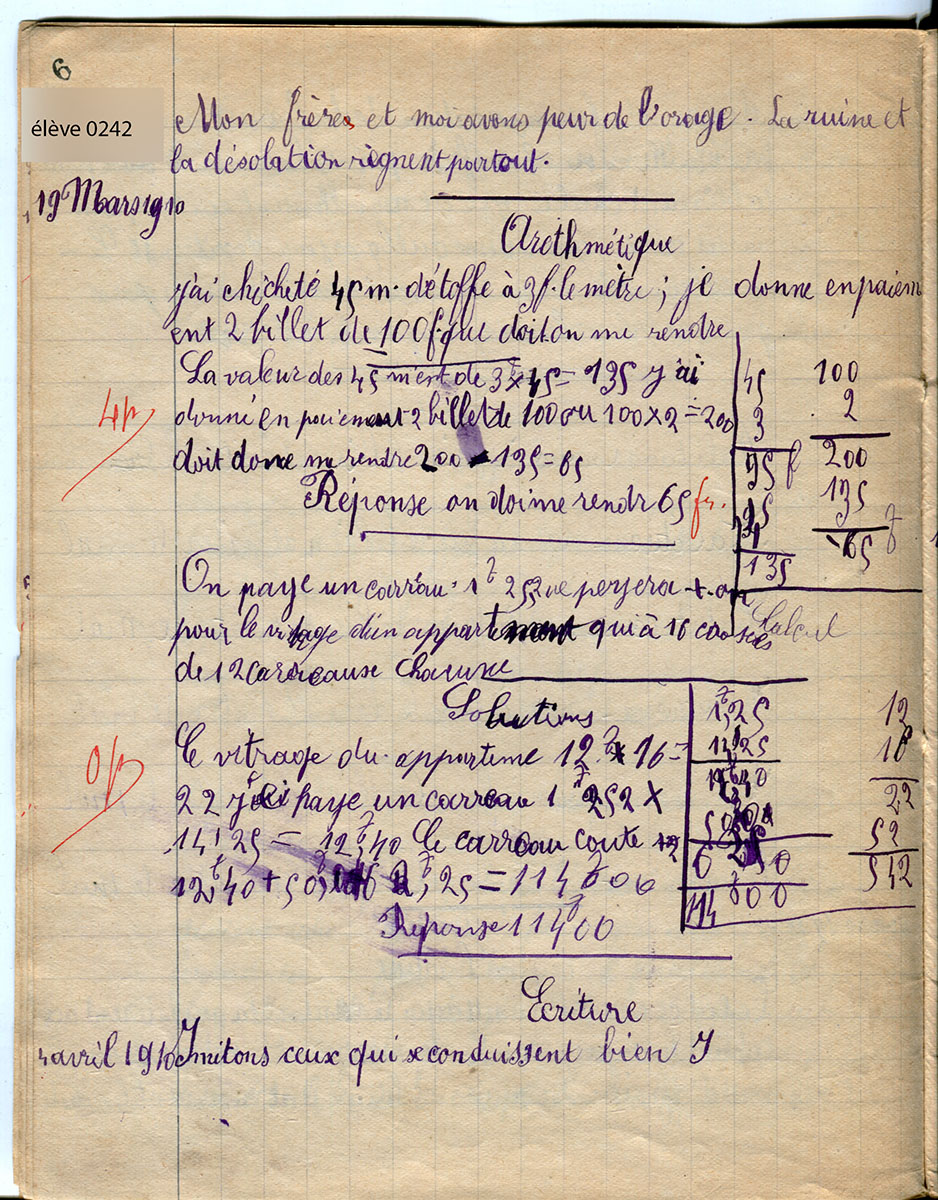 6
élève 0242
Mon frères et moi avons peur de l'orage. La ruine et
la désolation règnent partout.
19 Mars 1910
Arethmétique
j'ai chicheté 45 m. d'étoffe à 3f. le mètre ; je donne en paiem
ent 2 billet de 100f. que doit on me rendre
La valeur des 45 m est de 3 x 45 = 135 j'ai
4p
donné en paiement 2 billet de 100 ou 100 x 2 = 200
doit donc me rendre 200 - 135 = 65
Réponse on doi me rendr 65 fr.
45 100
3 2
95 f 200
135
135 65 f
On paye un carreau 1f 25 que peyera t. on
pour le vitrage d'un appartement qui à 16
Calcul
de 12 carreause chacune
Solutions
0p
Le vitrage du appartime 12 x 16 =
22 j'ai paye un carreau 1f 252 X
14f 25 = 12f,40 Le carreau coute
12f,40 + 50f, 25 = 114f 600
Réponse 114f00
1f,25 12
22
52
542
114 600
Ecriture
4 avril 1910 Imitons ceux qui se conduissent bien I